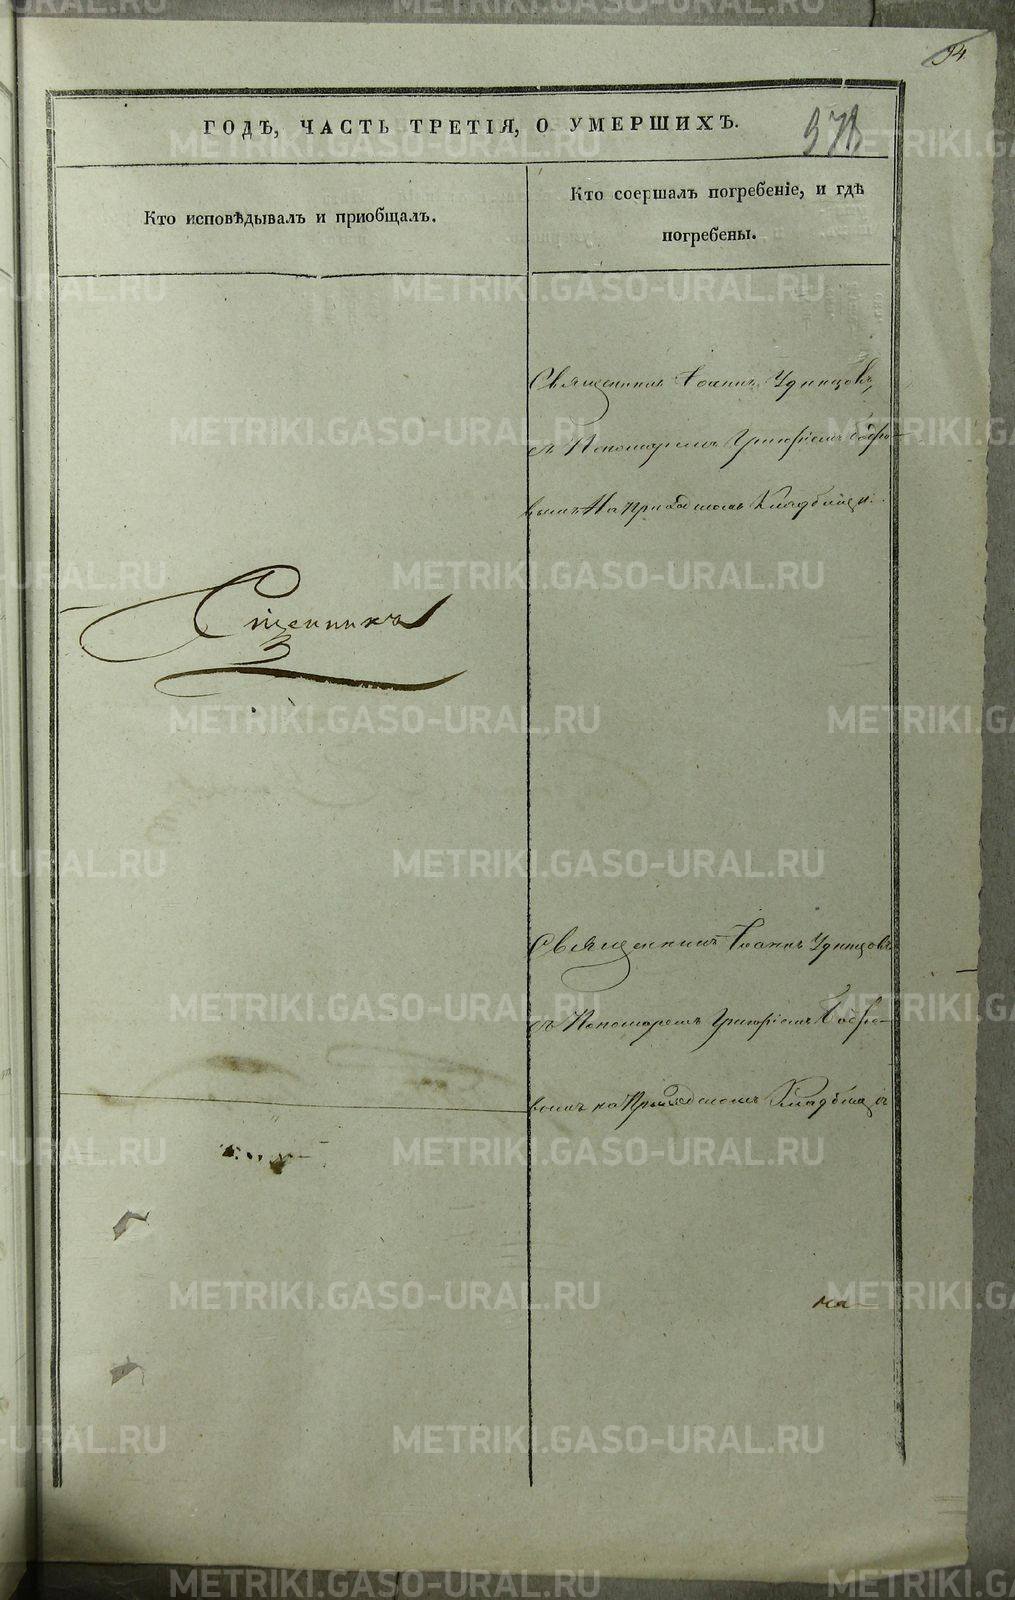 94
ГОДѢ, ЧАСТЬ ТРЕТІЯ, О УМЕРШИХЪ.
378
Кто исповѣдывалъ и пріобщалъ.
Кто соершалъ погребеніе, и гдѣ
погребены.
Священникъ Іоаннъ Удинцовъ,
съ Пономаремъ Григоріемъ Бобро-
вымъ На Приходскомъ Кладбищѣ.
Сщенникъ
Священникъ Іоаннъ Удинцовъ
съ Пономаремъ Григоріемъ Бобро-
вымъ на Приходскомъ Кладбищѣ
METRIKI.GASO-URAL.RU